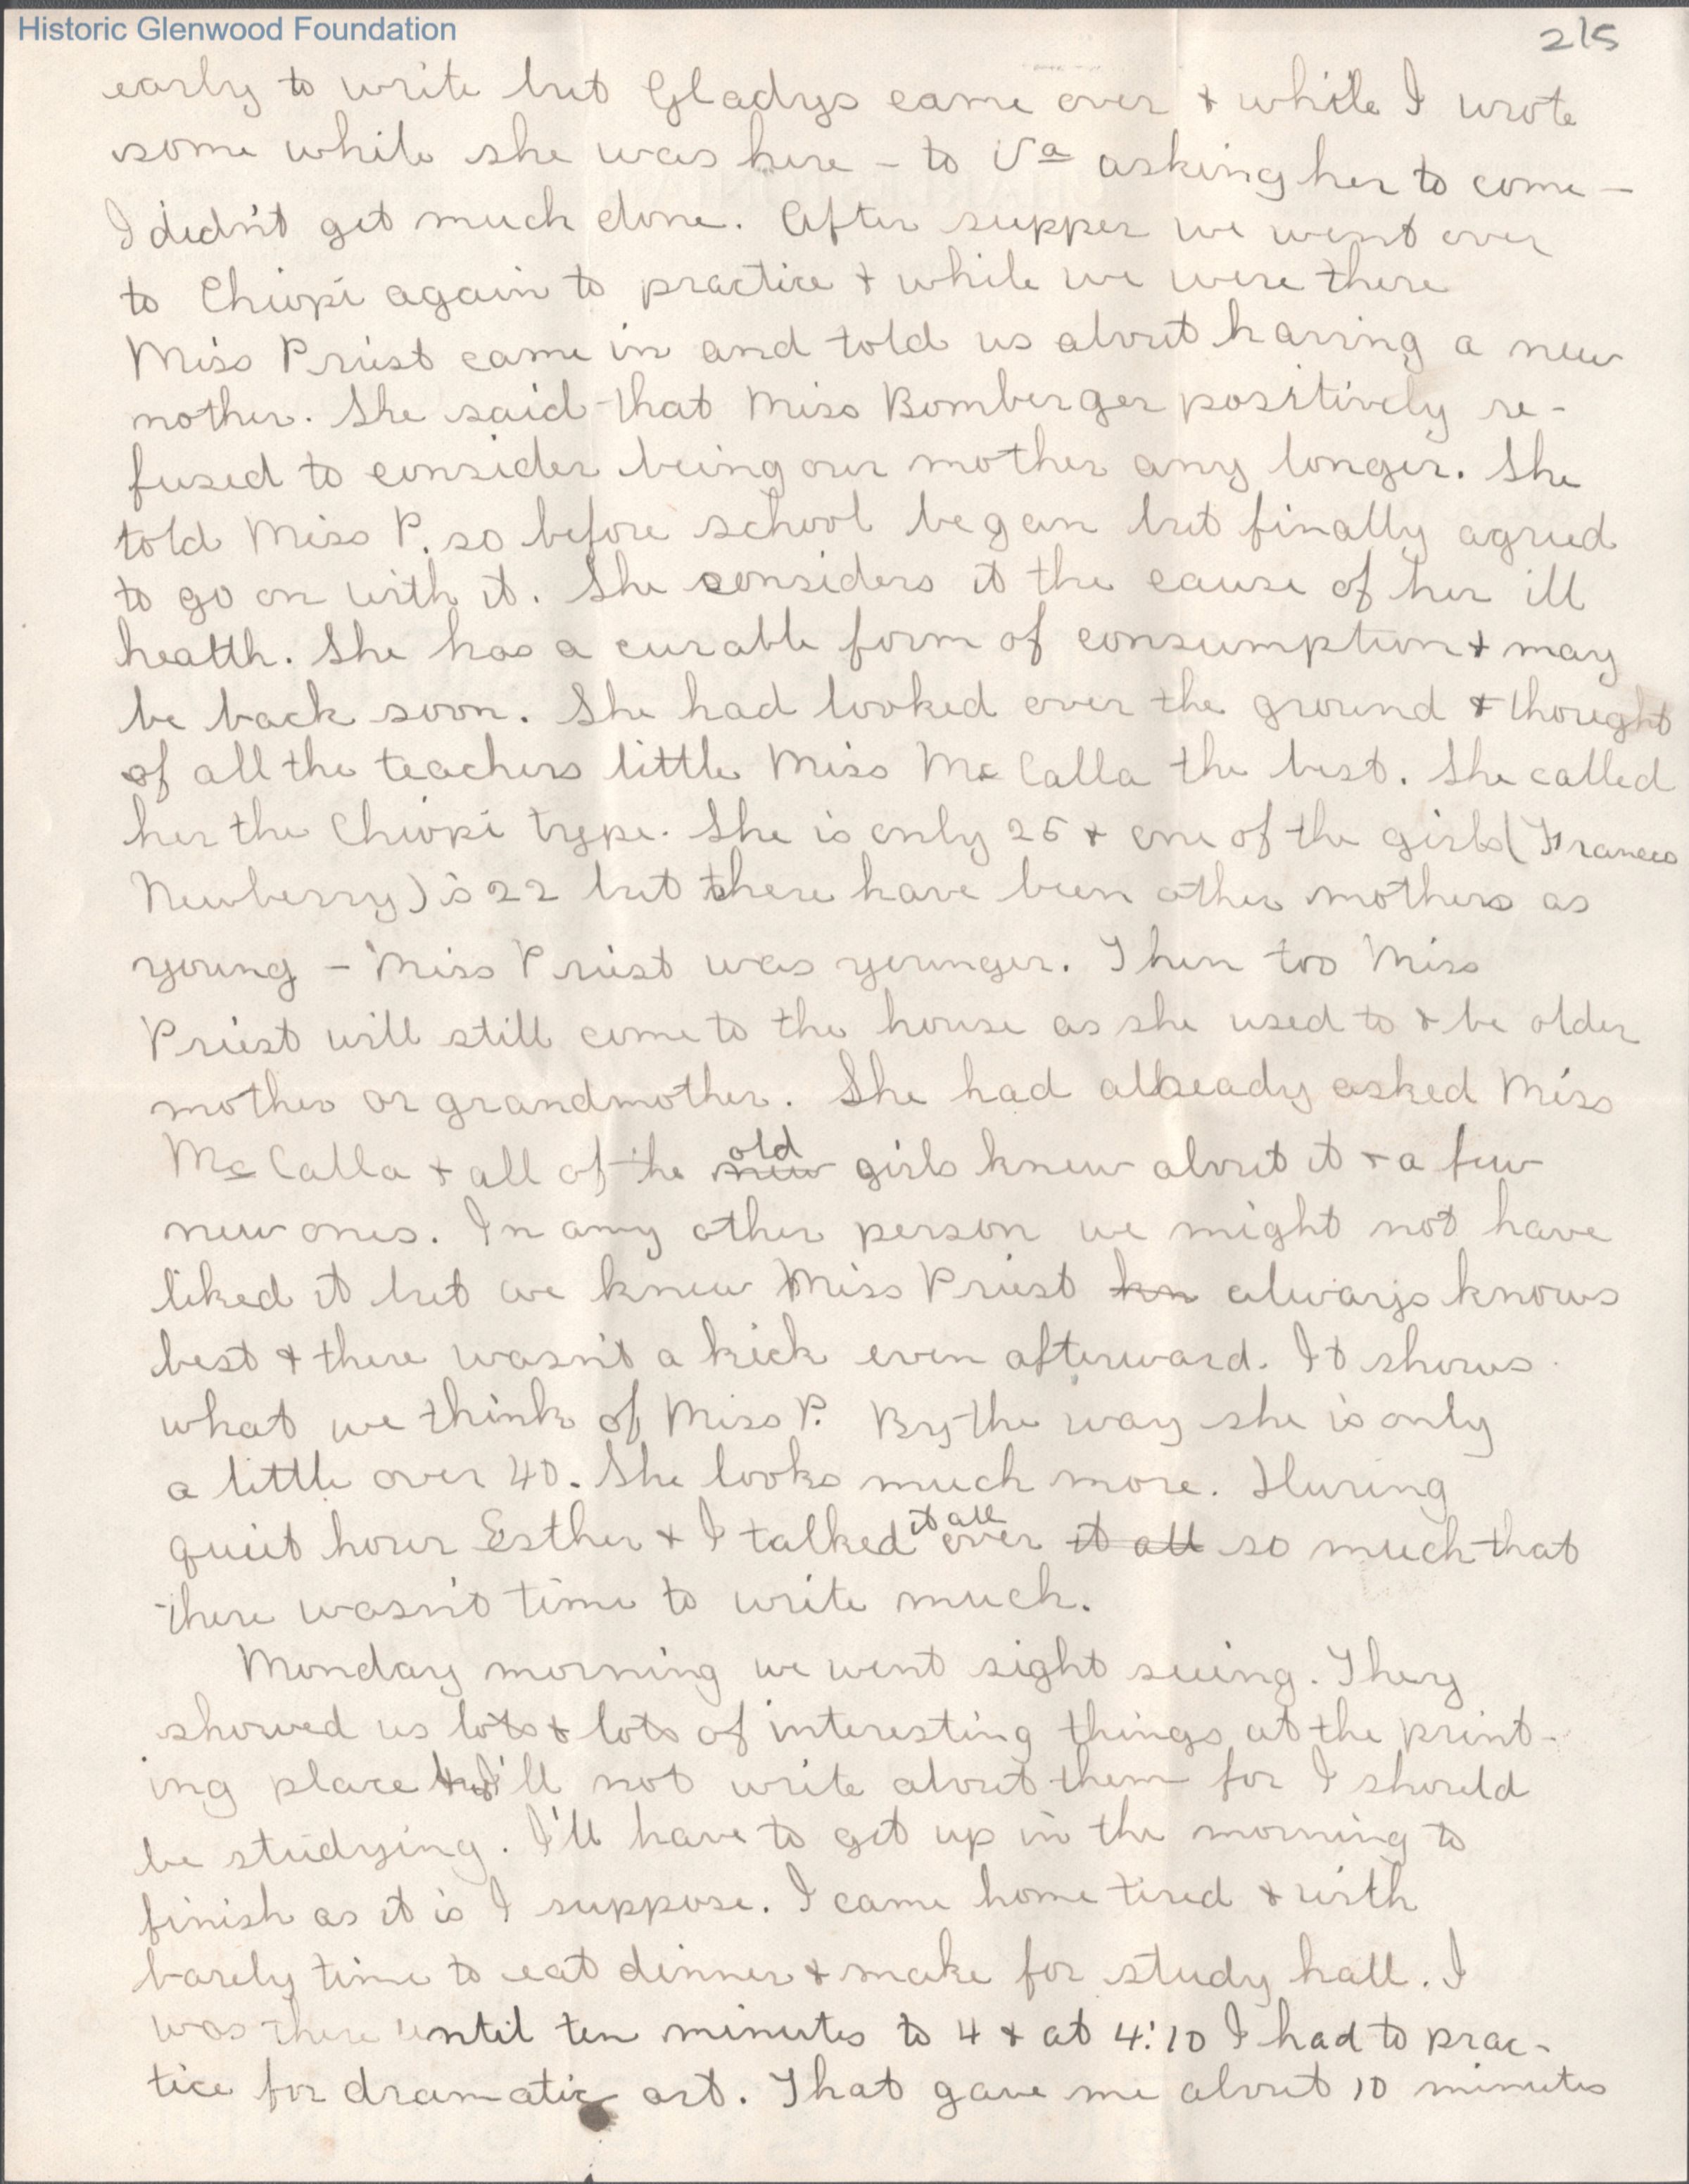 Historic Glenwood Foundation
215
early to write but Gladys came over & while I wrote
some while she was here – to Va asking her to come –
I didn't get much done. After supper we went over
to Chiopi again to practice & while we were there
Miss Priest came in and told us about having a new
mother. She said that Miss Bomberger positively re-
fused to consider being our mother any longer. She
told Miss P. so before school began but finally agreed
to go on with it. She considers it the cause of her ill
health. She has a curable form of consumption & may
be back soon. She had looked over the ground & thought
of all the teachers little Miss McCalla the best. She called
her the Chiopi type. She is only 25 & one of the girls (Frances
Newberry) is 22 but there have been other mothers as
young – Miss Priest was younger. Then too Miss
Priest will still come to the house as she used to & be older
mother or grandmother. She had already asked Miss
McCalla & all of the new old girls knew about it & a few
new ones. In any other person we might not have
liked it but we knew Miss Priest kn always knows
best & there wasn't a kick even afterward. It shows
what we think of Miss P. By the way she is only
a little over 40. She looks much more. During
quiet hour Esther & I talked it all over it all so much that
there wasn't time to write much.
Monday morning we went sight seeing. They
showed us lots & lots of interesting things at the print-
ing place I'll not write about them for I should
be studying. I'll have to get up in the morning to
finish as it is I suppose. I came home tired & with
barely time to eat dinner & make for study hall. I
was there until ten minutes to 4 & at 4:10 I had to prac-
tice for dramatic art. That gave me about 10 minutes